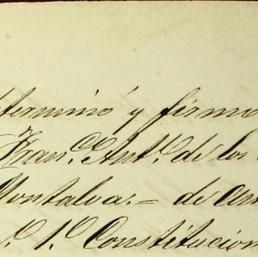 terminó y firmo
Fran.co Ant.o de los
Montalva.= de
1.o Constitucion